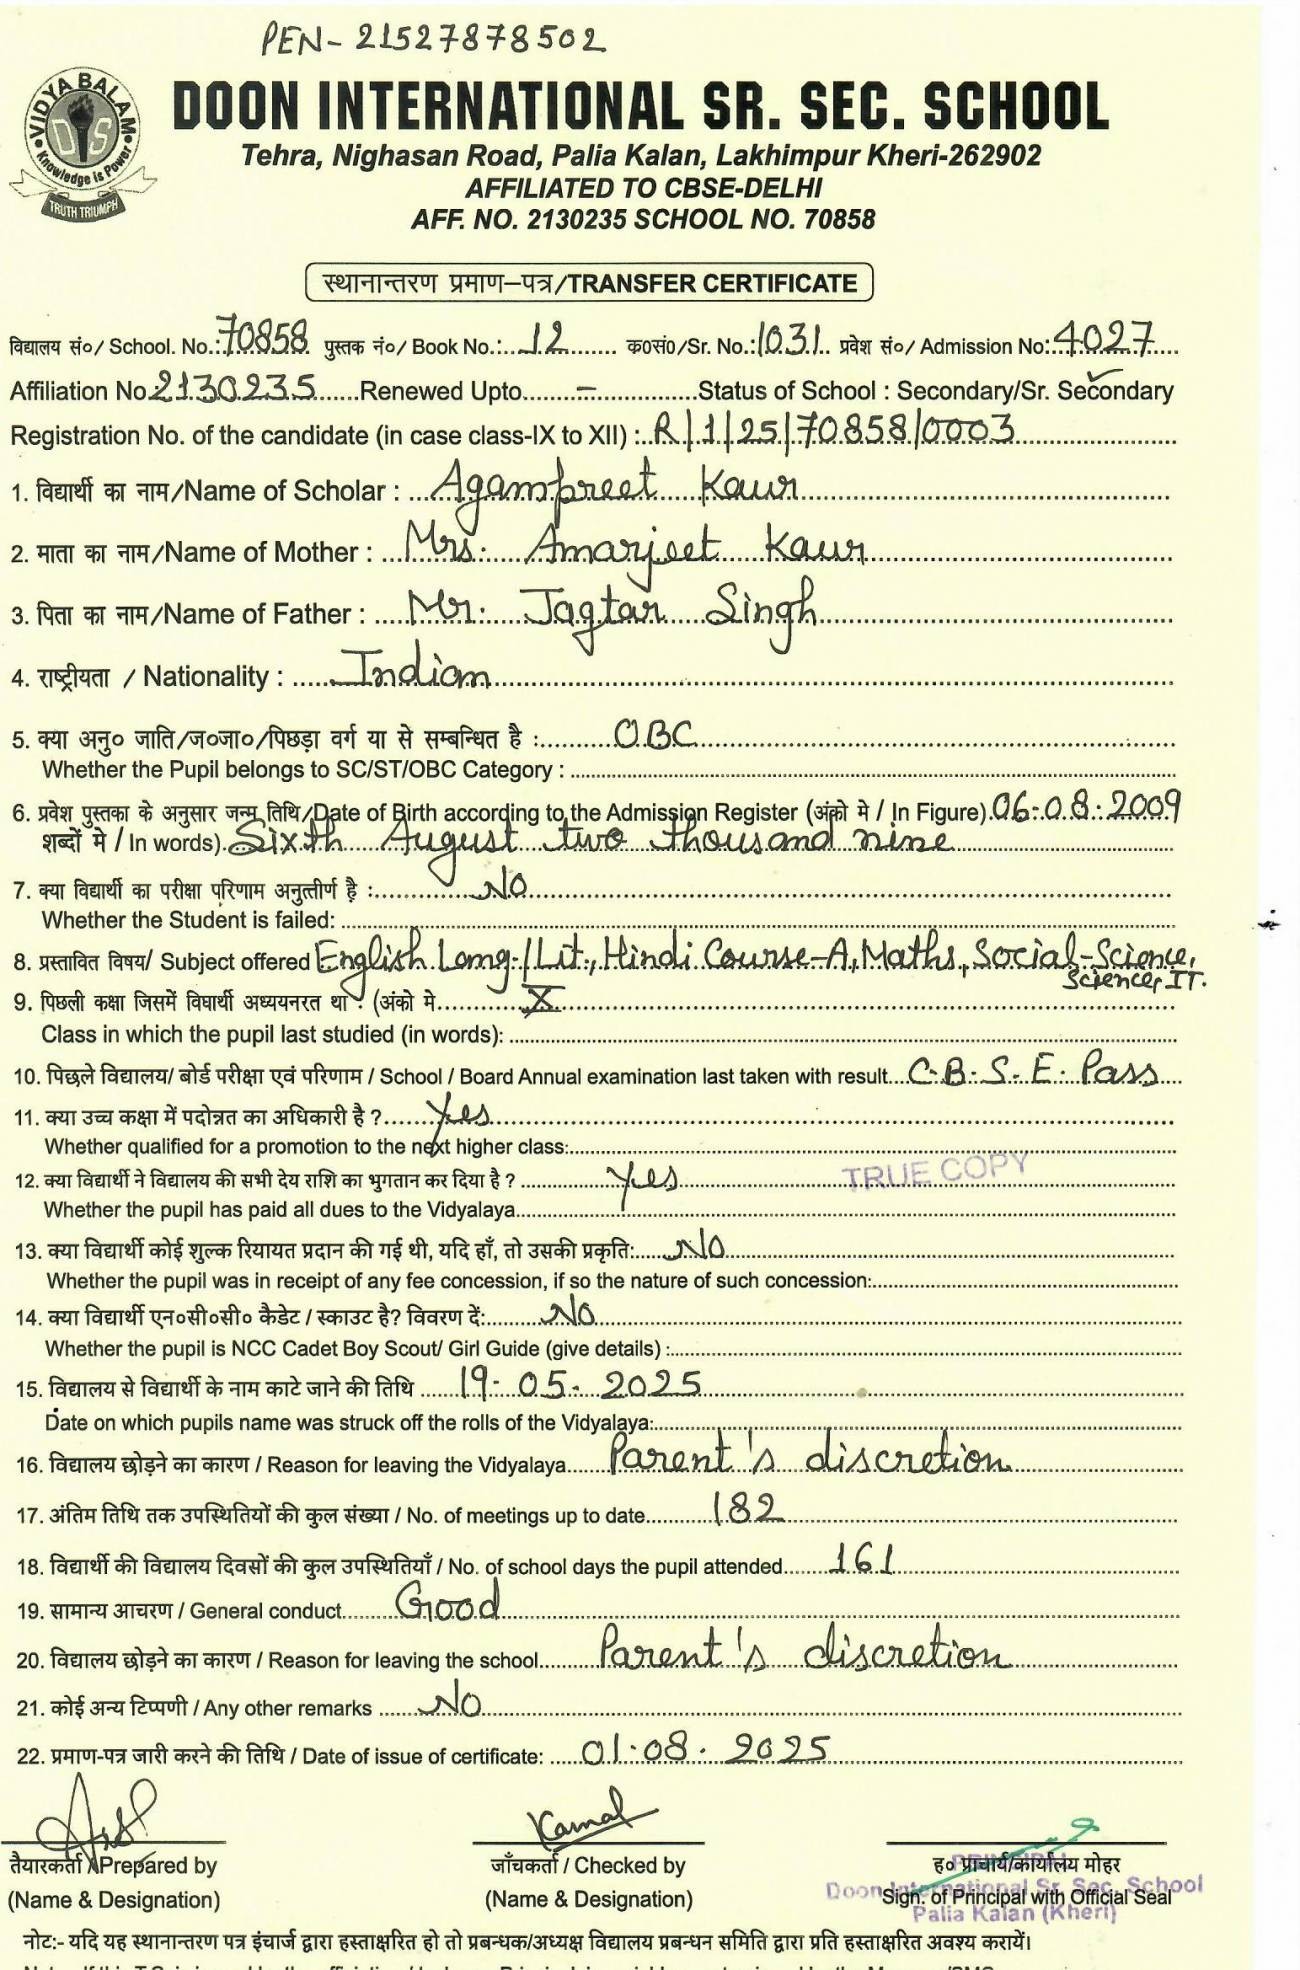 PEN- 21527878502
VIDYA BALAM
DIS
Knowledge is Power
TRUTH TRIUMPH
DOON INTERNATIONAL SR. SEC. SCHOOL
Tehra, Nighasan Road, Palia Kalan, Lakhimpur Kheri-262902
AFFILIATED TO CBSE-DELHI
AFF. NO. 2130235 SCHOOL NO. 70858
स्थानान्तरण प्रमाण–पत्र/TRANSFER CERTIFICATE
विद्यालय सं०/ School. No.: 70858 पुस्तक नं०/ Book No.: 12 क०सं०/Sr. No.: 1031 प्रवेश सं०/ Admission No: 4027
Affiliation No. 2130235 Renewed Upto - Status of School : Secondary/Sr. Secondary
Registration No. of the candidate (in case class-IX to XII) : R/1/25/70858/0003
1. विद्यार्थी का नाम/Name of Scholar : Agampreet Kaur
2. माता का नाम/Name of Mother : Mrs. Amarjeet Kaur
3. पिता का नाम/Name of Father : Mr. Jagtar Singh
4. राष्ट्रीयता / Nationality : Indian
5. क्या अनु० जाति/ज०जा०/पिछड़ा वर्ग या से सम्बन्धित है : OBC
Whether the Pupil belongs to SC/ST/OBC Category :
6. प्रवेश पुस्तका के अनुसार जन्म तिथि/Date of Birth according to the Admission Register (अंको मे / In Figure). 06.08.2009
शब्दों मे / In words). Sixth August two thousand nine
7. क्या विद्यार्थी का परीक्षा परिणाम अनुत्तीर्ण है : No
Whether the Student is failed:
8. प्रस्तावित विषय/ Subject offered English Lang./Lit., Hindi Course-A, Maths, Social-Science,
Science, IT.
9. पिछली कक्षा जिसमें विघार्थी अध्ययनरत था : (अंको मे X
Class in which the pupil last studied (in words):
10. पिछले विद्यालय/ बोर्ड परीक्षा एवं परिणाम / School / Board Annual examination last taken with result C.B.S.E. Pass
11. क्या उच्च कक्षा में पदोन्नत का अधिकारी है ? Yes
Whether qualified for a promotion to the next higher class:
12. क्या विद्यार्थी ने विद्यालय की सभी देय राशि का भुगतान कर दिया है ? Yes TRUE COPY
Whether the pupil has paid all dues to the Vidyalaya
13. क्या विद्यार्थी कोई शुल्क रियायत प्रदान की गई थी, यदि हाँ, तो उसकी प्रकृति: No
Whether the pupil was in receipt of any fee concession, if so the nature of such concession:
14. क्या विद्यार्थी एन०सी०सी० कैडेट / स्काउट है? विवरण दें: No
Whether the pupil is NCC Cadet Boy Scout/ Girl Guide (give details) :
15. विद्यालय से विद्यार्थी के नाम काटे जाने की तिथि 19. 05. 2025
Date on which pupils name was struck off the rolls of the Vidyalaya:
16. विद्यालय छोड़ने का कारण / Reason for leaving the Vidyalaya Parent's discretion
17. अंतिम तिथि तक उपस्थितियों की कुल संख्या / No. of meetings up to date 182
18. विद्यार्थी की विद्यालय दिवसों की कुल उपस्थितियाँ / No. of school days the pupil attended 161
19. सामान्य आचरण / General conduct Good
20. विद्यालय छोड़ने का कारण / Reason for leaving the school Parent's discretion
21. कोई अन्य टिप्पणी / Any other remarks No
22. प्रमाण-पत्र जारी करने की तिथि / Date of issue of certificate: 01.08. 2025
Kamal
तैयारकर्ता / Prepared by जाँचकर्ता / Checked by ह० प्राचार्य/कार्यालय मोहर
PRINCIPAL
Doon International Sr. Sec. School
(Name & Designation) (Name & Designation) Sign. of Principal with Official Seal
Palia Kalan (Kheri)
नोट:- यदि यह स्थानान्तरण पत्र इंचार्ज द्वारा हस्ताक्षरित हो तो प्रबन्धक/अध्यक्ष विद्यालय प्रबन्धन समिति द्वारा प्रति हस्ताक्षरित अवश्य करायें।